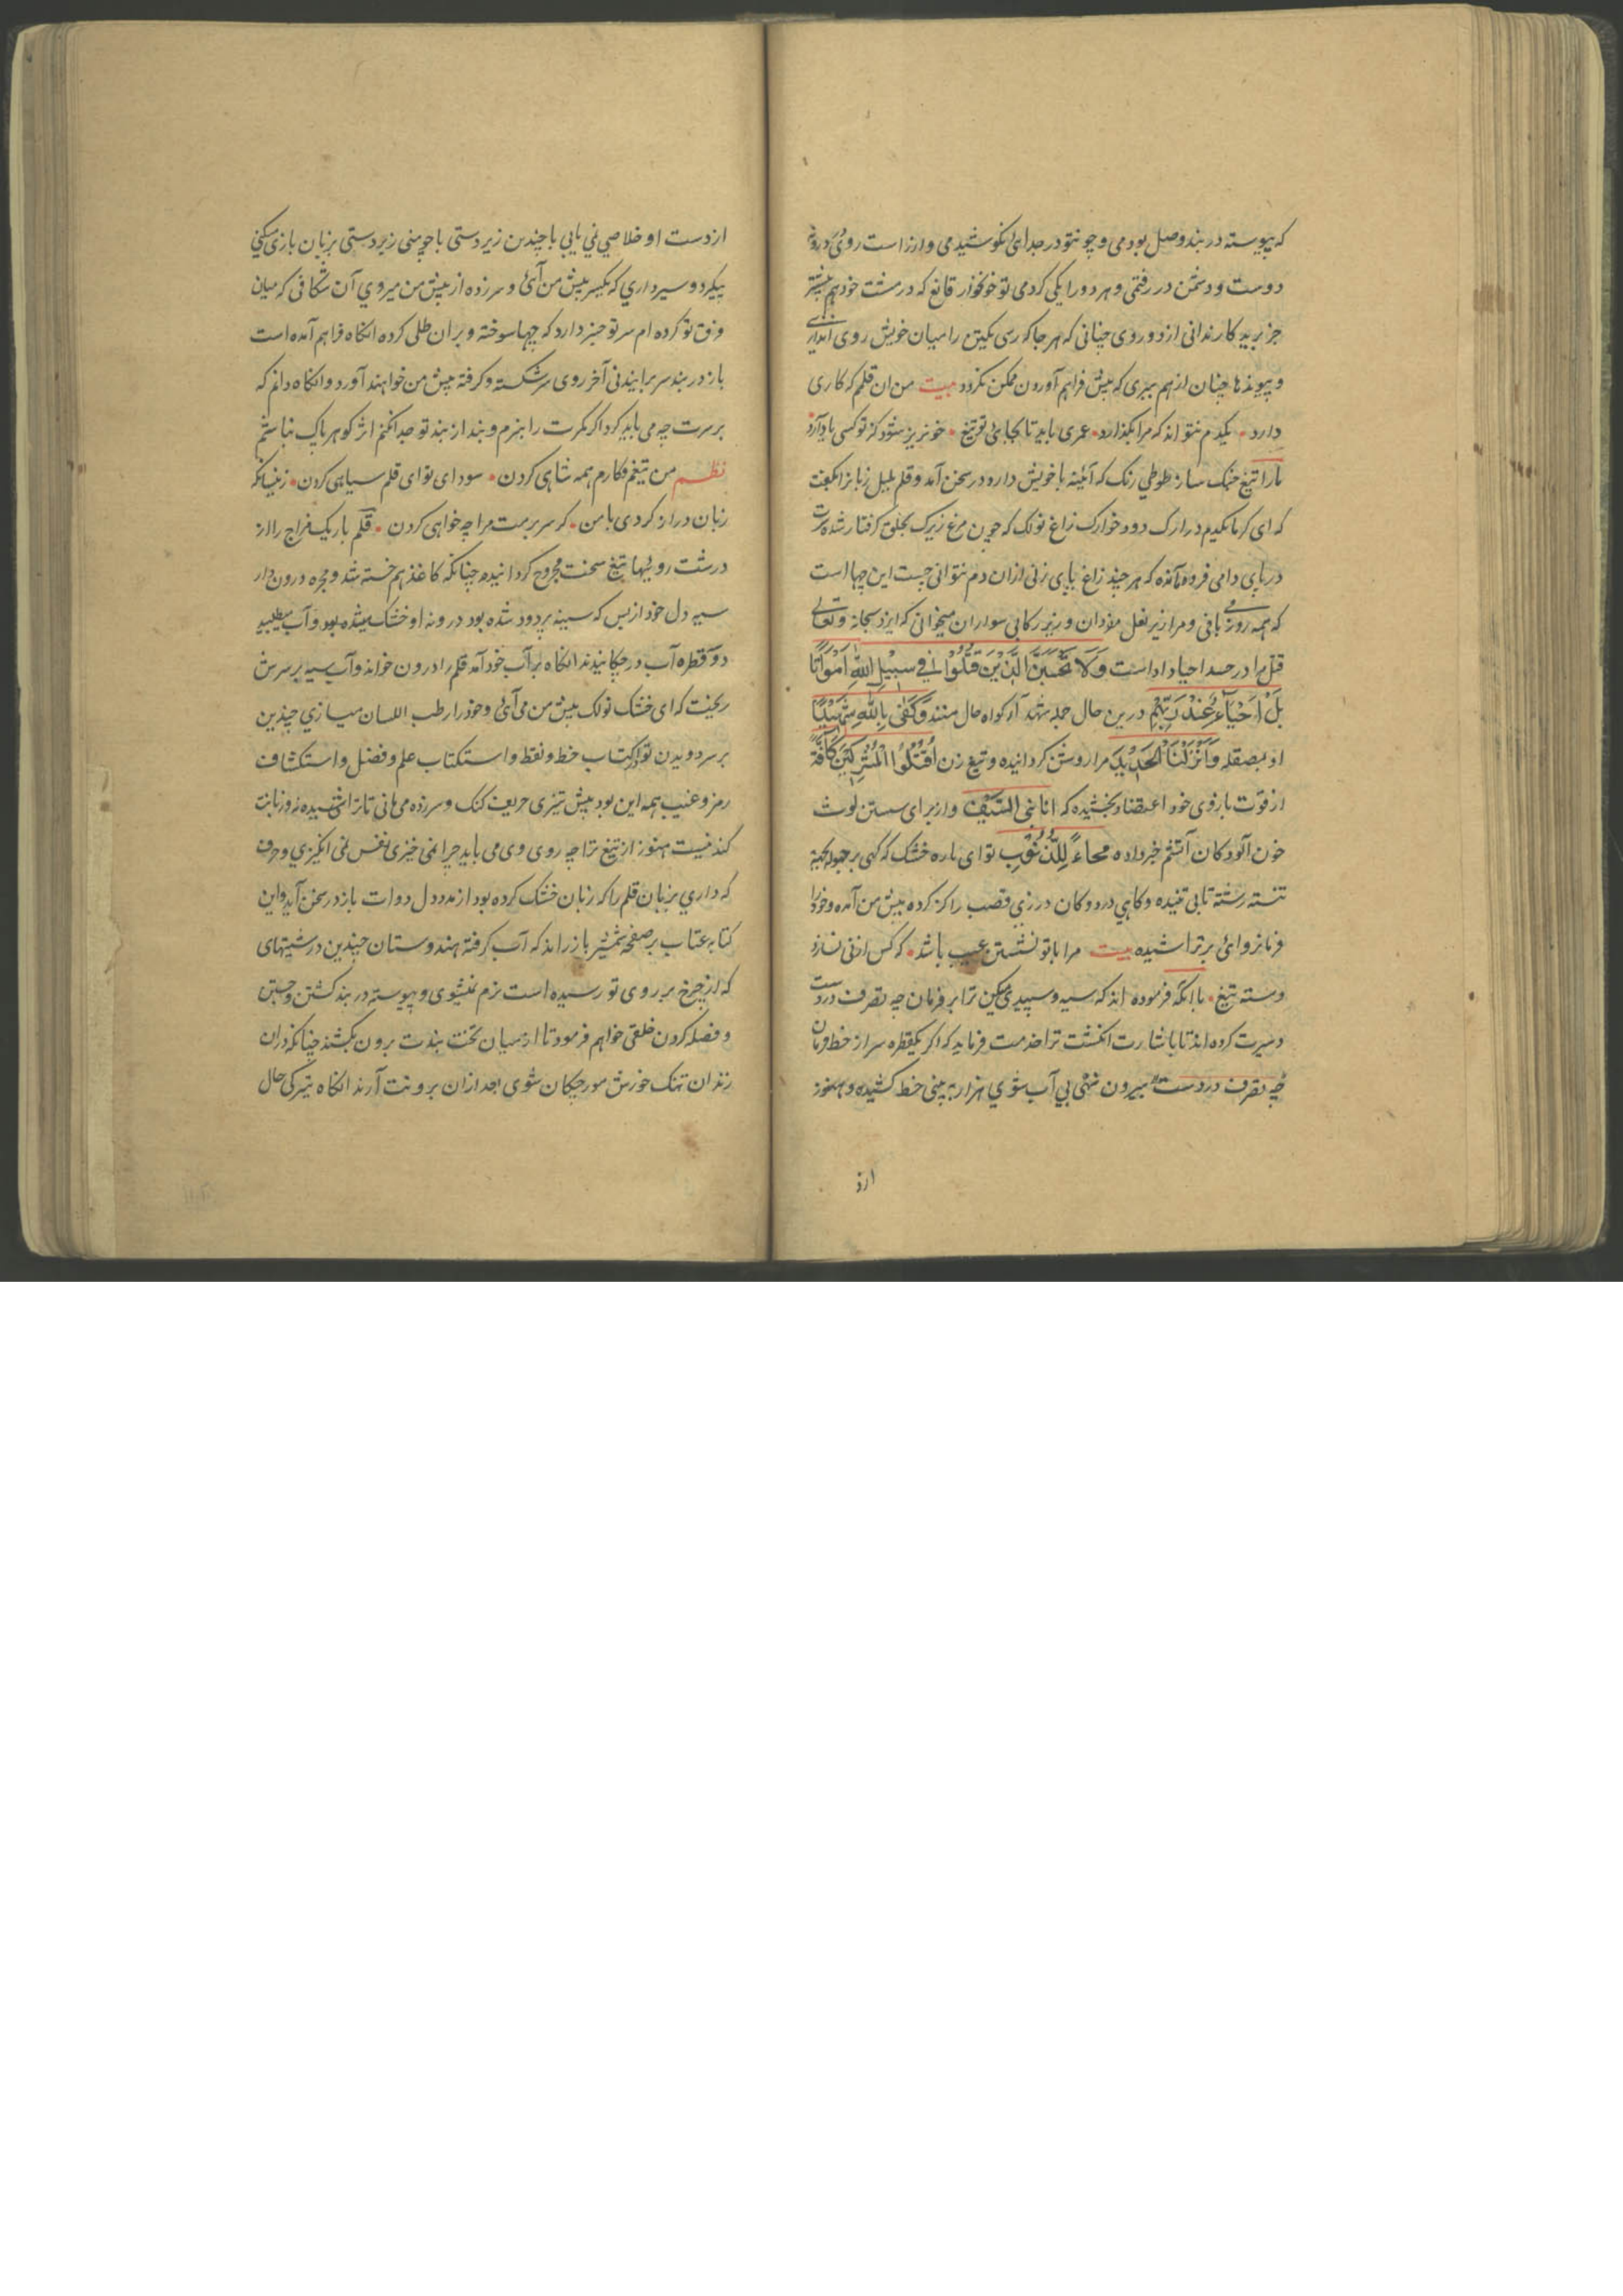 که پیوسته در بند وصل بودمی و چو نتو در جدائی نکوشیدمی و ارزاست روئی درونهٔ
دوست و دشمن در رفتمی و هر دو را یکی کردمی تو خونخوار قانع که در مشت خود هم بیشتر
جز برید کار ندانی از دو روی چنانی که هر جا که رسی یکتن را میان خویش روی اندازی
و پیوندها چنان از هم ببری که بیش فراهم آوردن ممکن نکردد بیت من ان قلم که کاری
دارد • یکدم نتواند که مرا بکذارد • عمری باید تا بجا بنی تو تیغ • خونریز شود کز تو کسی یاد آرد
بارا تیغ خنک سار طوطی رنک که آئینه با خویش داره در سخن آمد و قلم بلبل زبانرا بکفت
که ای کرمابکدیم درازک دود خوارک زاغ نولک که چون مرغ زیرک بحلق کرفتار شده سرت
در پای دامی فرو مانده که هر چند زاغ پای زنی ازان دم نتوانی جست این چها است
که همه روزی بافی و مرا زیر نعل مؤذان و زیر رکابی سواران میخوانی که ایزد سبحانه و تعالی
قتل مرا در حسد احیا داد است وَلَا تَحْسَبَنَّ الَّذِیْنَ قُتِلُوْا فِیْ سَبِیْلِ اللّٰهِ اَمْوَاتًا
بَلْ اَحْیَاءٌ عِنْدَ رَبِّهِمْ درین حال جمله شهد آر کواه حال منند وَکَفٰی بِاللّٰهِ شَهِیْدًا
او بمصقله وَاَنْزَلْنَا الْحَدِیْدَ مرا روشن کردانیده و تیغ زن اُقْتُلُوا الْمُشْرِکِیْنَ کَافَّةً
از قوت بازوی خود اعتضاد بخشیده که انا نبی السَّیْف و از برای شستن لوث
خون آلودکان آتشم خبر داده محاءً لِلذُّنُوْبِ تو ای باره خشک که کهی بر جبولاجه
تنسته رشته تابی تنیده و کاهی در دوکان درزی قصب را کز کرده پیش من آمده و خود را
فرمانروائی برتراشیده بیت مرا با تو نشستن عیب باشد • که کس از نی نسازد
دسته تیغ • باانکه فرموده اند که سیه و سپیدی مکین ترا بر فرمان چه تصرف در دست
دبیرت کرده اند تا باشارت انکشت ترا خدمت فرماید که اکر یکقطره سر از خط فرمان
چه تصرف در دست بیرون نهی بی آب شوی هزار به بینی خط کشیده و هنوز
ازد
از دست او خلاصی نمی یابی با چندین زیر دستی با چو منی زبردستی بزبان بازی میکنی
پیکر دو سیر داری که بکیسر پیش من آئی و سر زده از پیش من میروی آن شکافی که میان
فرق تو کرده ام سر تو خبر دارد که چها سوخته و بر ان طلی کرده انکاه فراهم آمده است
باز در بند سر برایندنی آخر روی سر شکسته و کرفته پیش من خواهند آورد و انکاه دانم که
بر سرت چه می باید کرد اکر مکرت را بنزم و بند از بند تو جدا نکنم از کوهر پاک نباشم
نظم من تیغم و کارم همه شاهی کردن • سودای تو ای قلم سیاهی کردن • زینسانکه
زبان دراز کردی با من • که سر برمت مرا چه خواهی کردن • قلم باریک مزاج را از
درشت رویها تیغ سخت مجروح کردانیده چنانکه کاغذ هم خسته شد و مجره درون دار
سیه دل خود از بس که سینه پر دود شده بود درونه او خشک میشده بود و آب میطلبید
دو قطره آب در چکانیدند انکاه بر آب خود آمد قلم را درون خواند و آب سیه بر سرش
ریخت که ای خشک نولک پیش من می آئی و خود را رطب اللسان میسازی چندین
بر سر دویدن تو اکتساب خط و نقط و استکتاب علم و فضل و استکشاف
رمز و غیب همه این بود پیش تیزی حریف کنک و سر زده می مانی تا تراشیده نه و زبانت
کند نیست هنوز از تیغ ترا چه روی وی می باید چرا نمی خیزی نفس نمی انکیزی و حرف
که داری بزبان قلم را که زبان خشک کرده بود از مدد دل دوات باز در سخن آید و این
کتابه عتاب بر صفحه شمشیر باز راند که آب کرفته هندوستان چندین درشتیهای
که از چرخ بر روی تو رسیده است نرم نمیشوی و پیوسته در بند کشتن و جستن
و فصله کردن خلقی خواهم فرمود تا از میان تخت بندت برون بکشند چنانکه دران
زندان تنک خورش مورچکان شوی ابعد ازان برونت آرند انکاه تیز کی حال